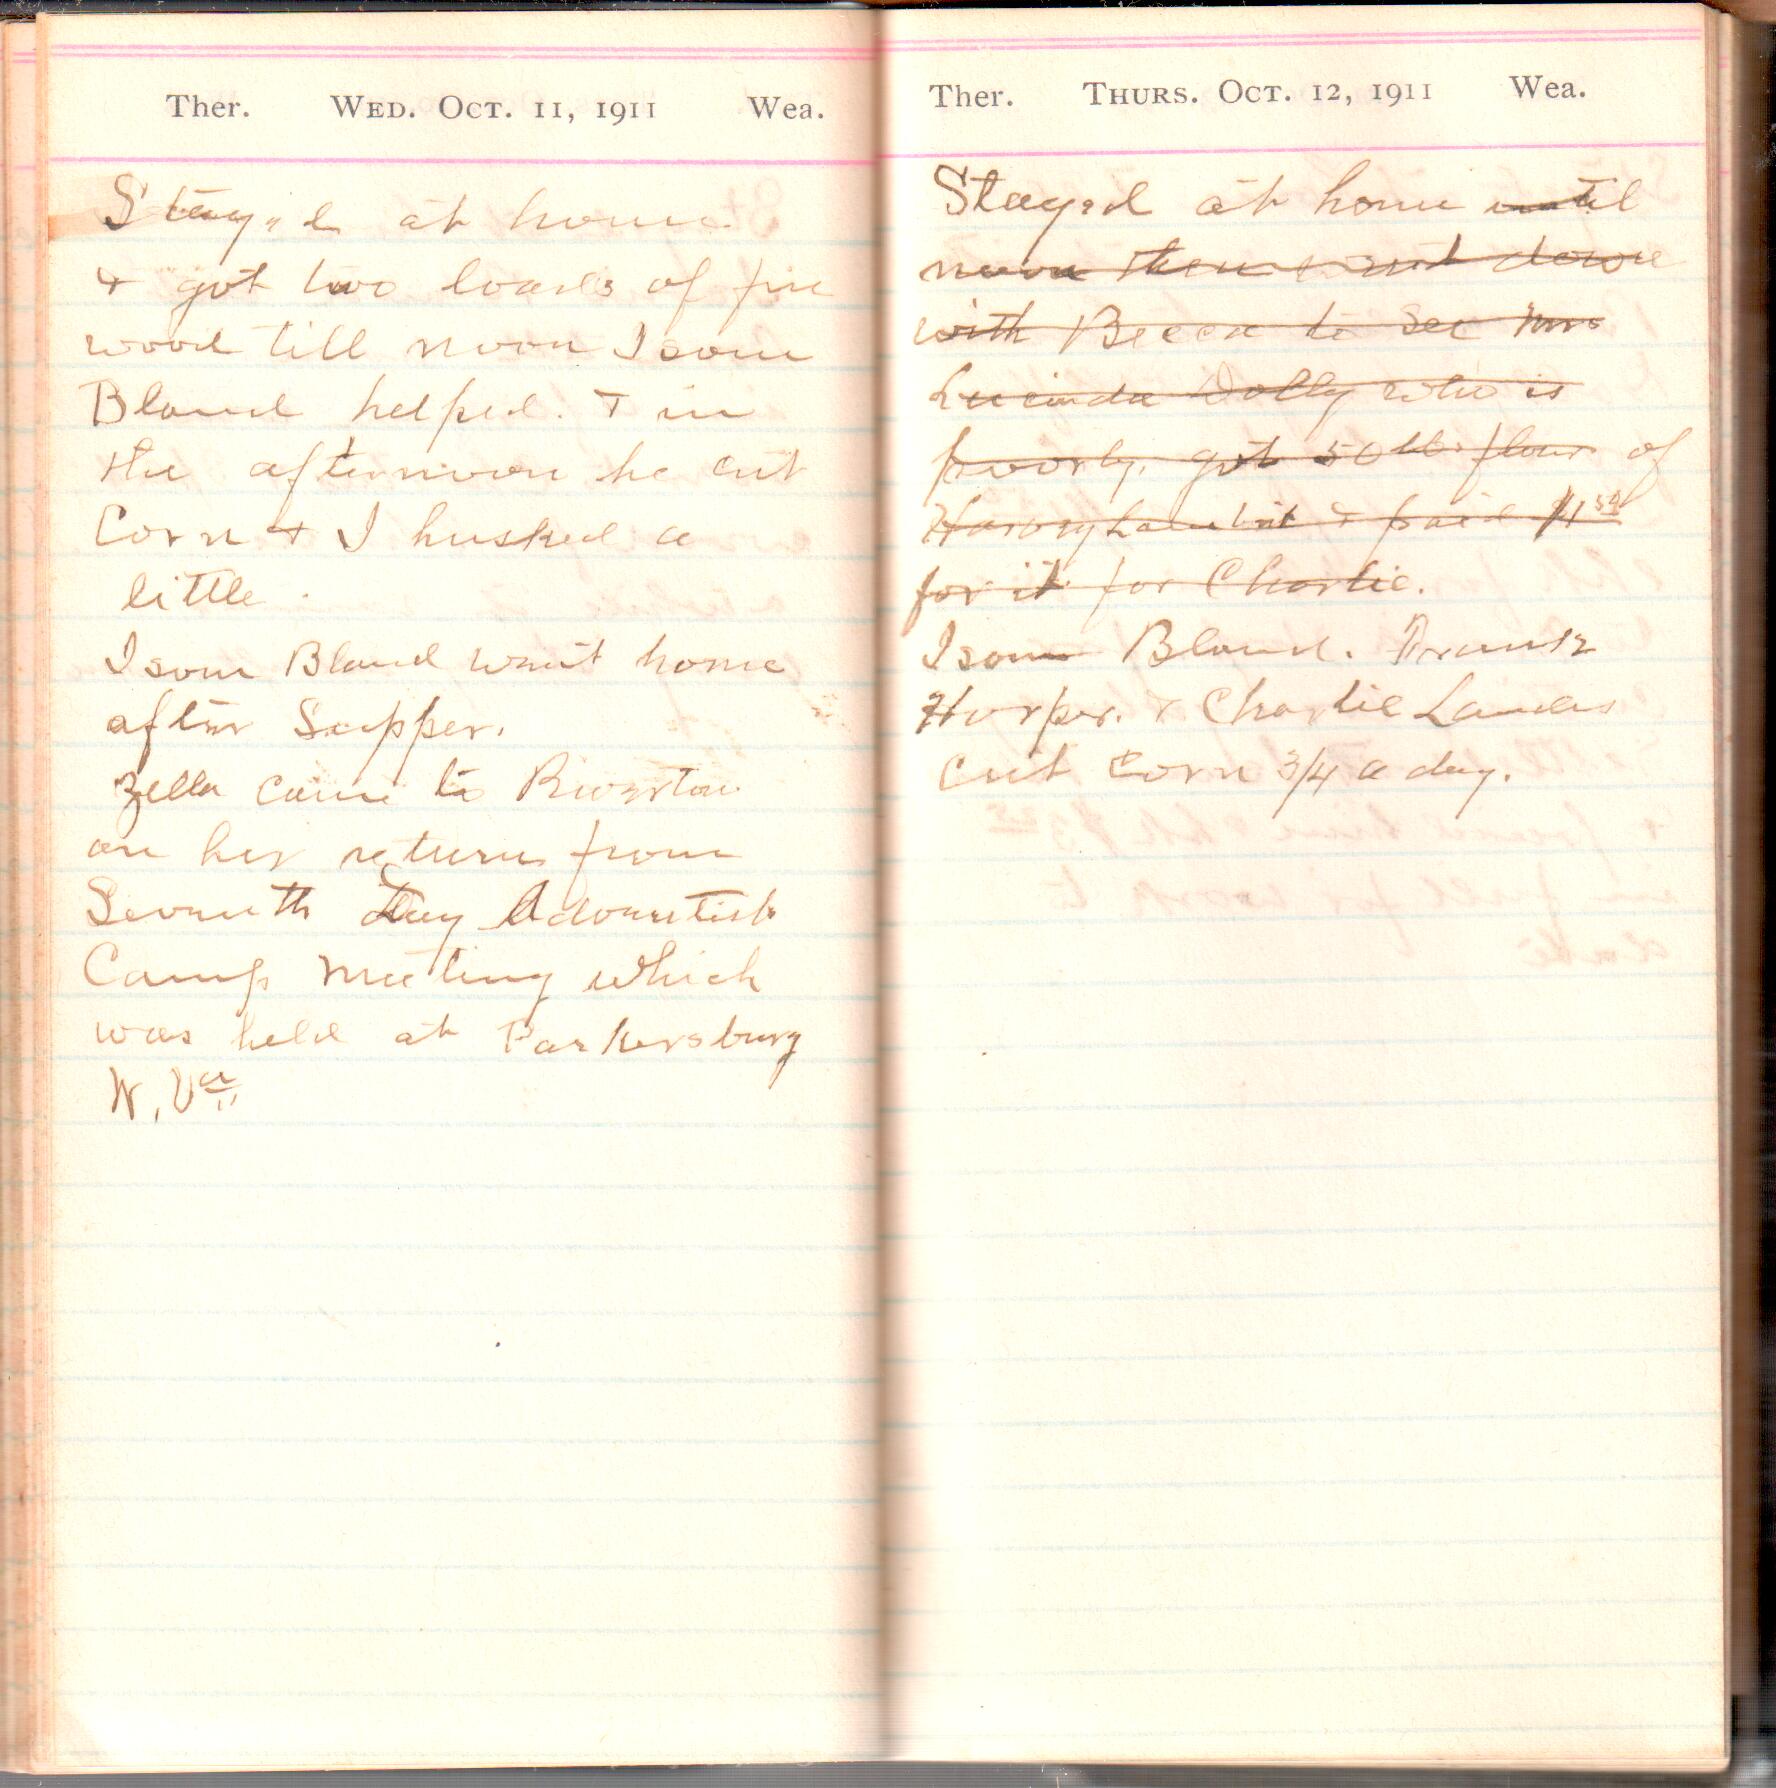 Ther. Wed. Oct. 11, 1911 Wea.
Stayed at home
& got two loads of fire
wood till noon Isom
Bland helped. & in
the afternoon he cut
Corn & I husked a
little.
Isom Bland went home
after Supper.
Zella came to Riverton
on her return from
Seventh Day Adventist
Camp Meeting which
was held at Parkersburg
W. Va
Ther. Thurs. Oct. 12, 1911 Wea.
Stayed at home until
noon then went down
with Becca to See Mrs
Lucinda Dolly who is
poorly. got 50 lb flour of
Harvy Lambert & paid $1 50
for it for Charlie.
Isom Bland. Frank
Harper. & Charlie Landes
cut Corn 3/4 a day.